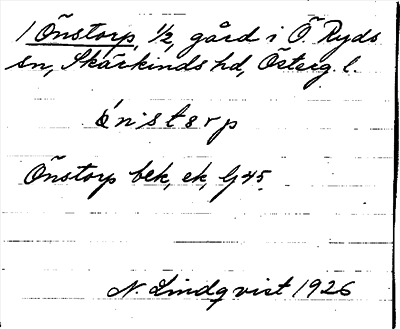 1 Önstorp, 1/2, gård i Ö. Ryds
sn, Skärkinds hd, Österg. l.
ǿn·stɵrp
Önstorp bek, ek, Gj 45.
N. Lindqvist 1926